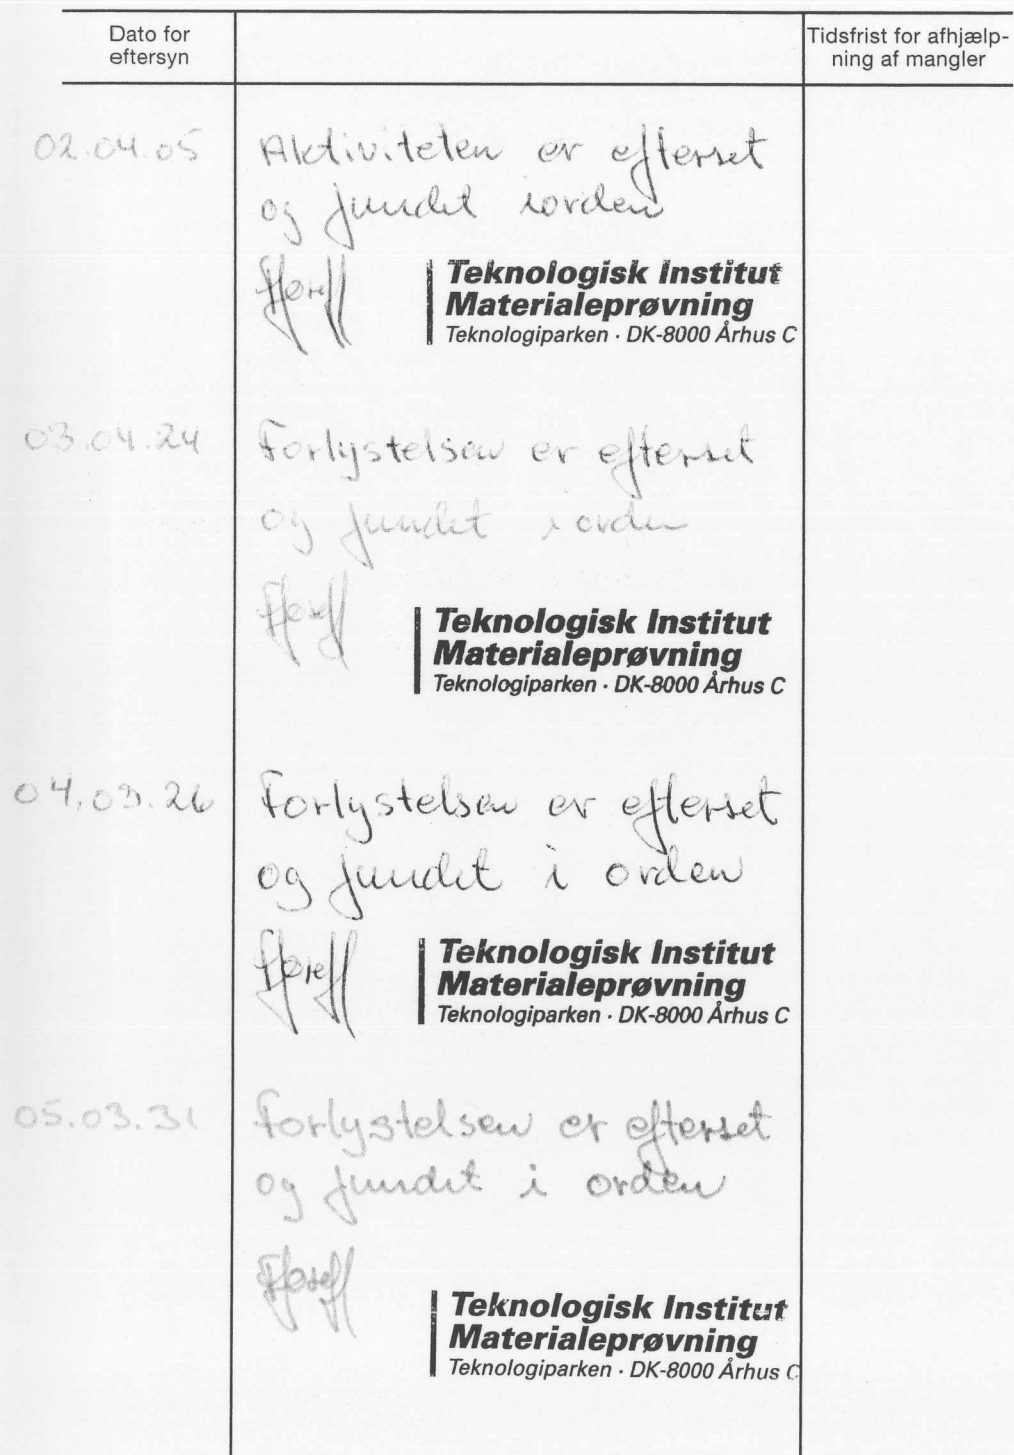 Dato for
eftersyn
Tidsfrist for afhjælp-
ning af mangler
02.04.05
Aktiviteten er efterset
og fundet iorden
Teknologisk Institut
Materialeprøvning
Teknologiparken · DK-8000 Århus C
03.04.24
Forlystelsen er efterset
og fundet i orden
Teknologisk Institut
Materialeprøvning
Teknologiparken · DK-8000 Århus C
04.03.26
Forlystelsen er efterset
og fundet i orden
Teknologisk Institut
Materialeprøvning
Teknologiparken · DK-8000 Århus C
05.03.31
Forlystelsen er efterset
og fundet i orden
Teknologisk Institut
Materialeprøvning
Teknologiparken · DK-8000 Århus C